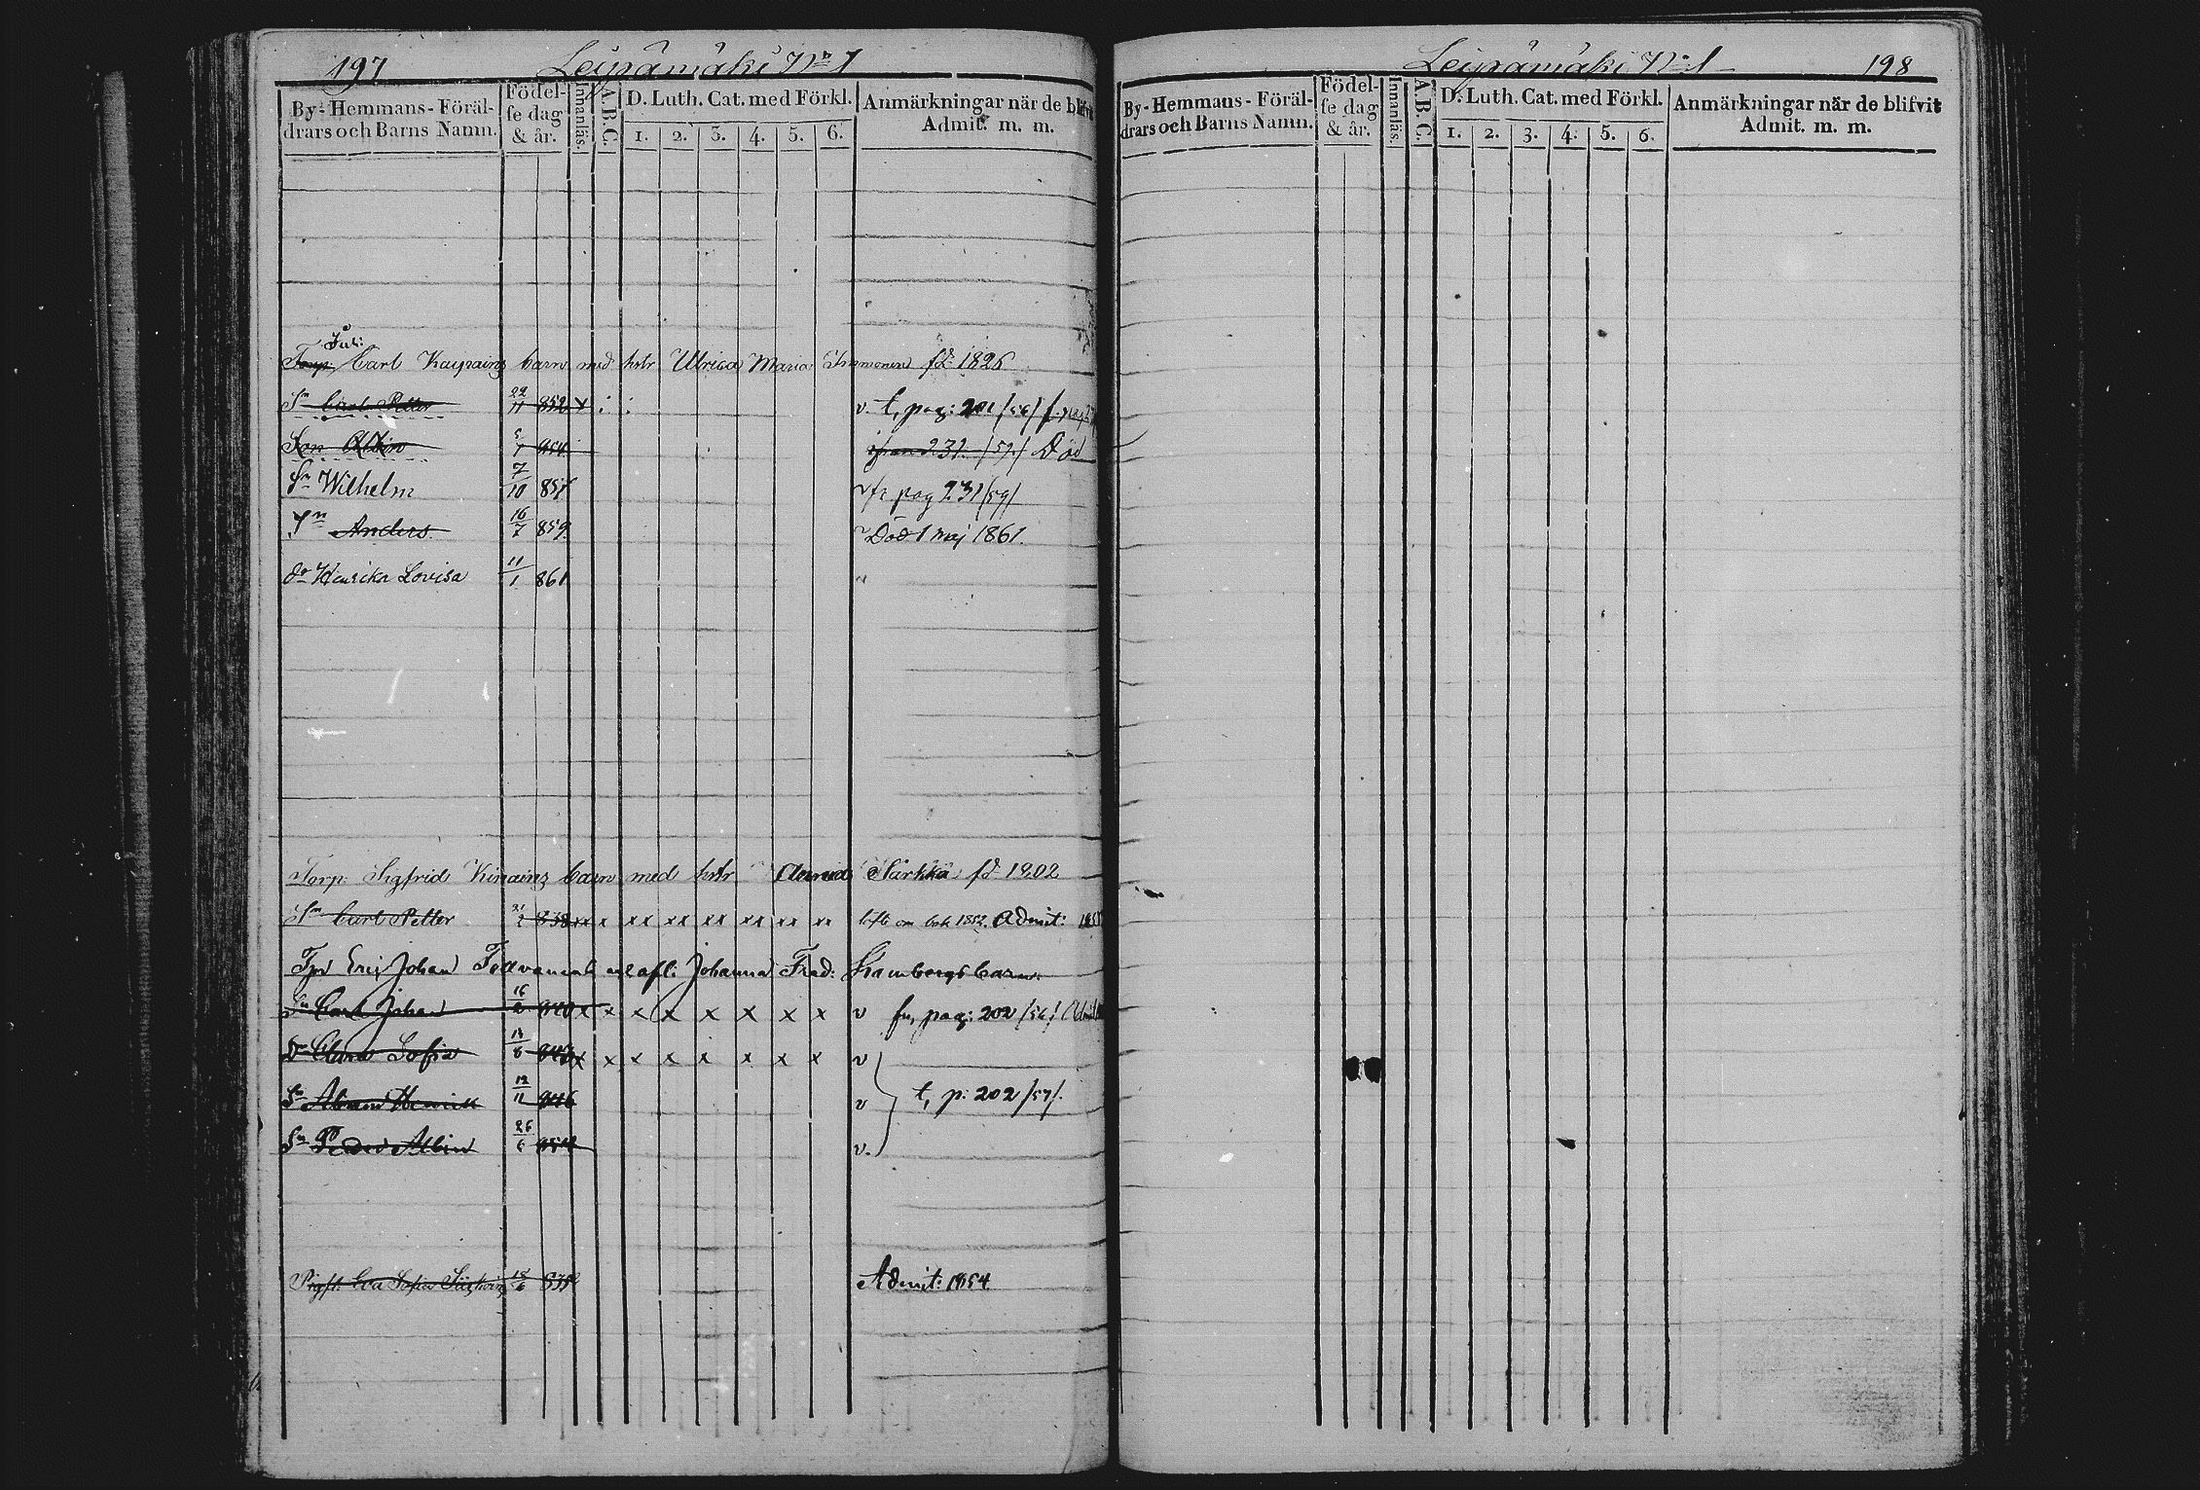 197 Leipämäki No 1
By- Hemmans- Föräl-drars och Barns Namn. Födel-se dag & år. Innanläs. A.B.C. D. Luth. Cat. med Förkl. 1. 2. 3. 4. 5. 6. Anmärkningar när de blifvit Admit. m. m.
Inh:
Torp. Carl Kaipains barn med hstr Ulrica Maria Immonen fd 1826
Sn Carl Petter 22/11 852 x v. t, pag: 201/56/
Son Albin 5/7 854 231 /59/ Död
Sn Wilhelm 7/10 857 v fr pag 231/59/
Sn Anders 16/7 859 Död 1 maj 1861.
dr Henrika Lovisa 11/1 861 "
Torp. Sigfrid Kinains barn med hstr Särkkä fd 1802
Sn Carl Petter 838 xx x xx xx xx xx xx xx 1852. Admit:
Erij Johan afl: Johanna Fred: Strambergs barn.
Sn Carl Johan 16/2 840 x x x x x x x x v fr, pag: 202 /56/
Dr Clara Sofia 8 x x x x x x x x v
Sn Abram Henrik 12/11 846 v t, p: 202 /57/.
Sn Albin 26/6 v.
Eva Sofia 6 Admit: 1854
Leipämäki No 1 198
By- Hemmans- Föräl-drars och Barns Namn. Födel-se dag & år. Innanläs. A.B.C. D. Luth. Cat. med Förkl. 1. 2. 3. 4. 5. 6. Anmärkningar när de blifvit Admit. m. m.